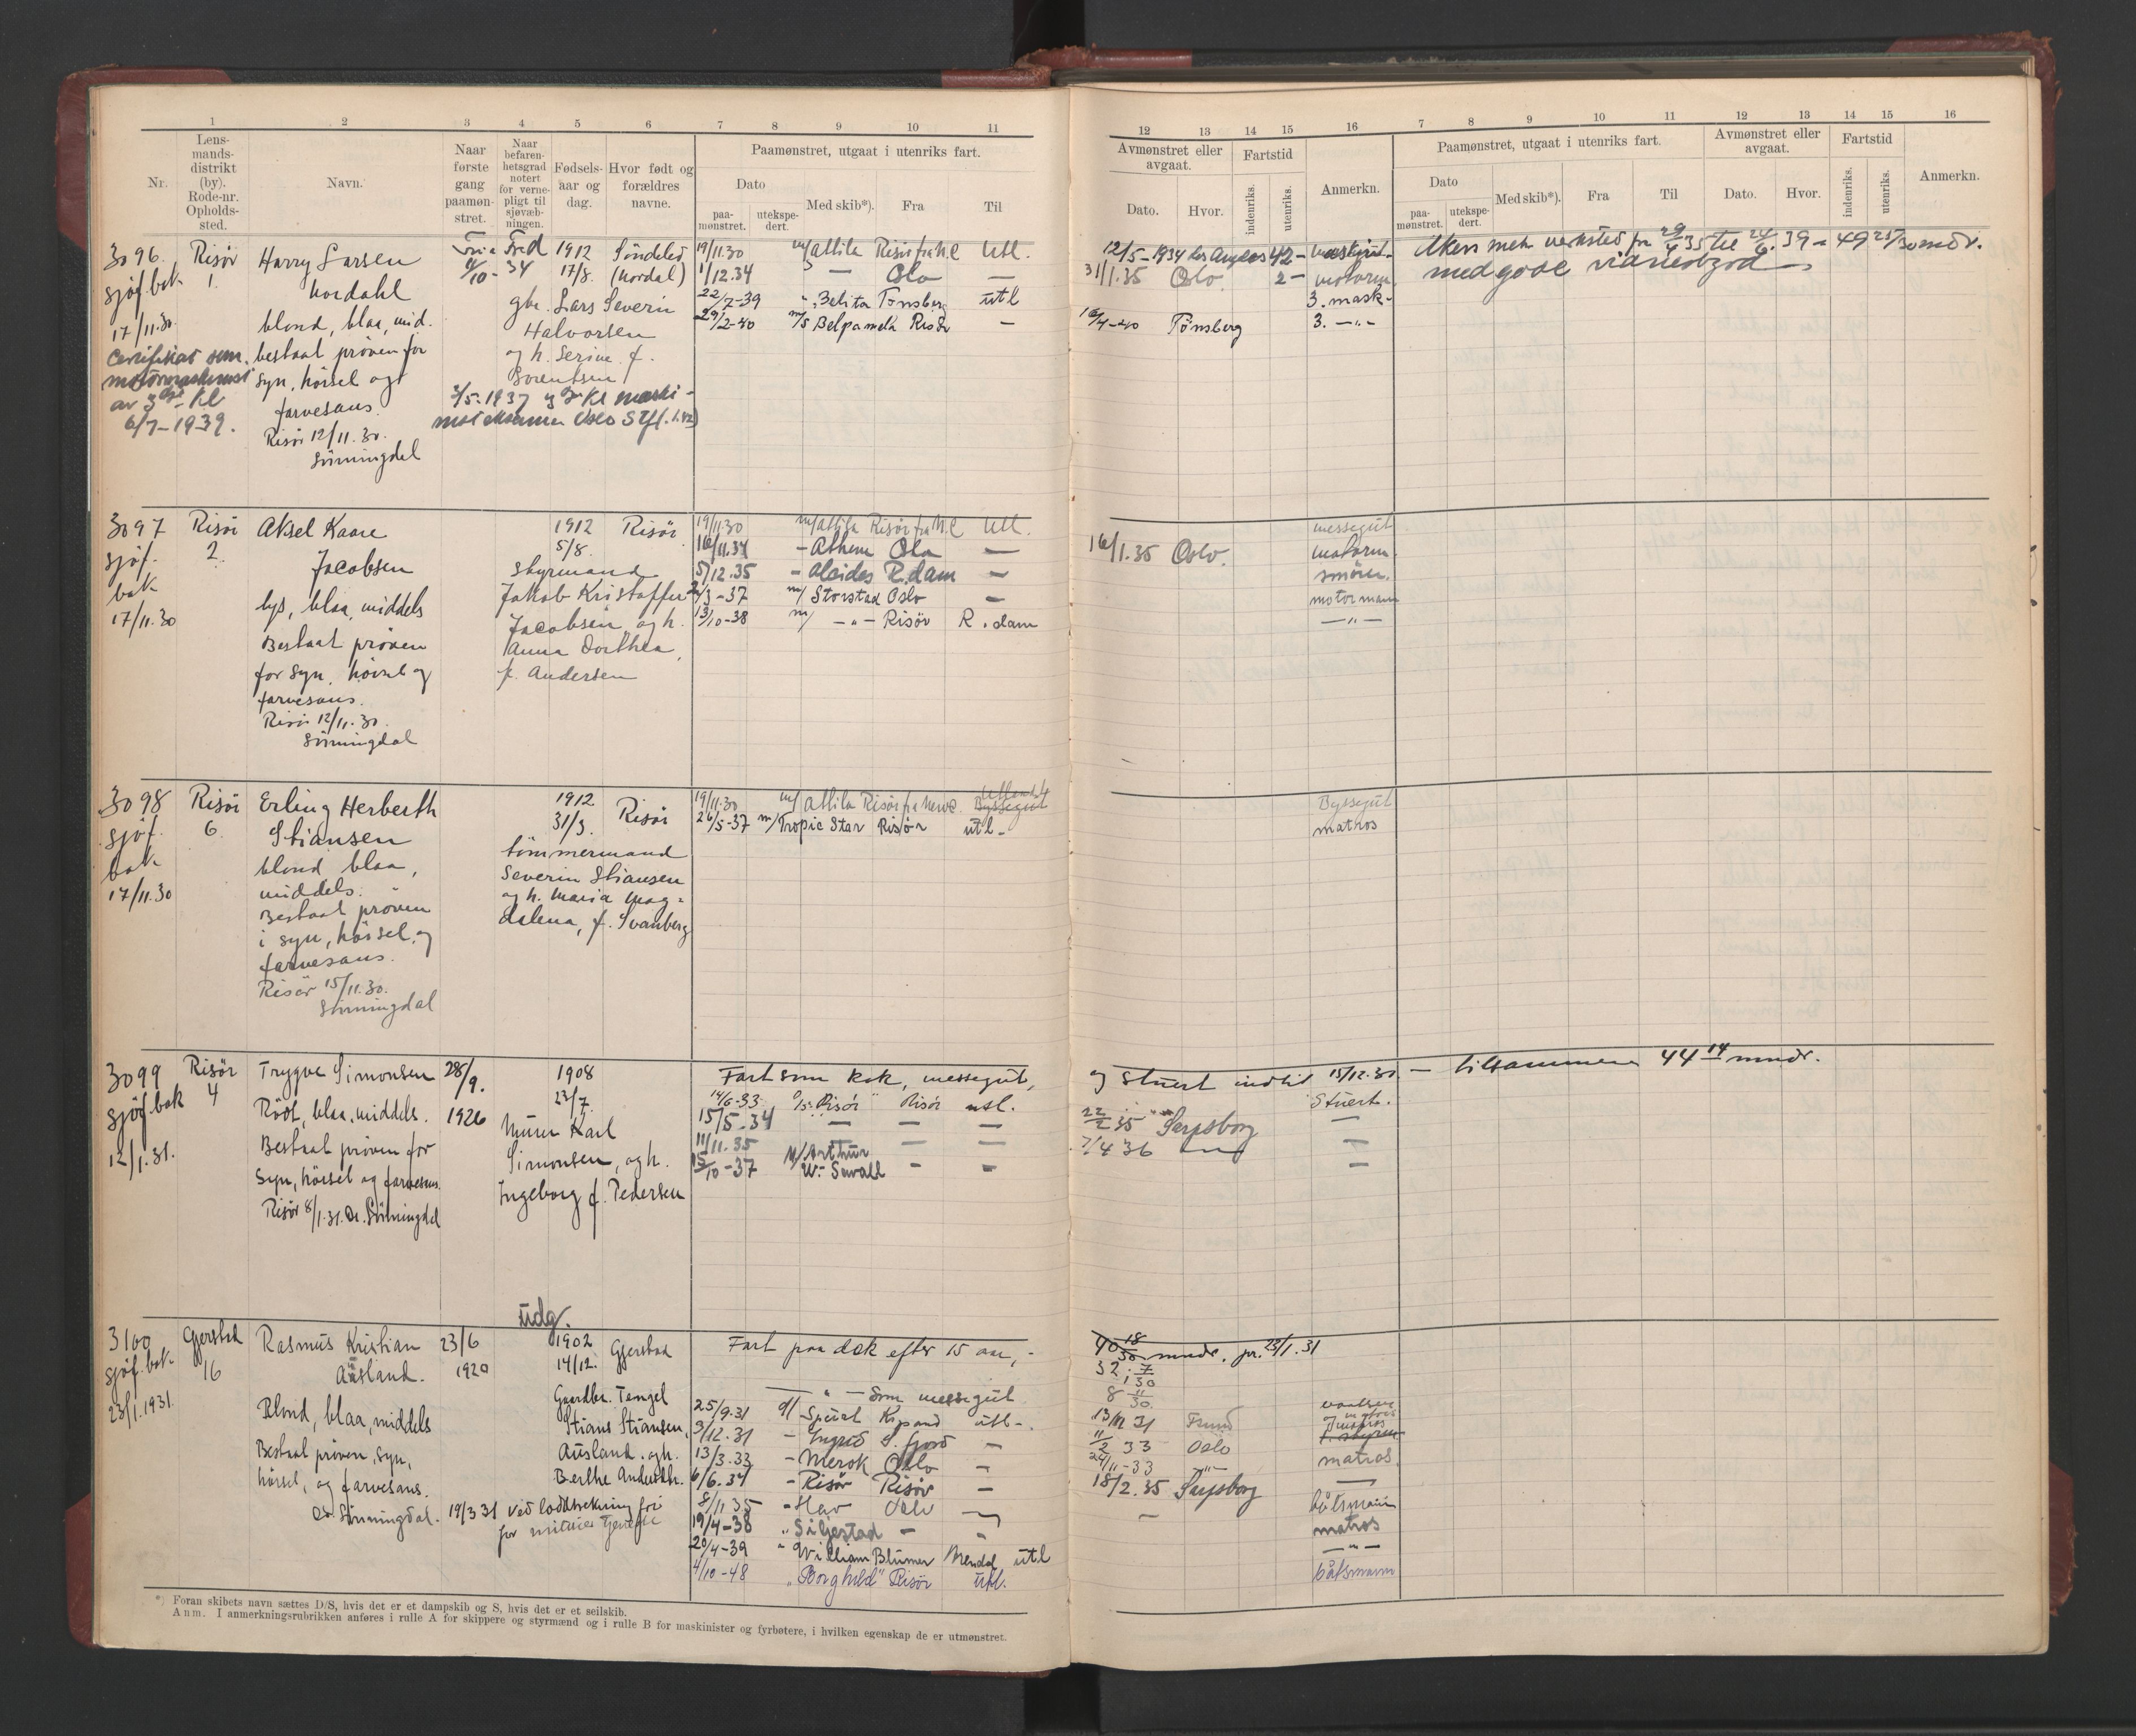 1 2 3 4 5 6 7 8 9 10 11
Nr.
Lens-
mands-
distrikt
(by).
Rode-nr.
Opholds-
sted.
Navn.
Naar
første
gang
paamøn-
stret.
Naar
befaren-
hetsgrad
notert
for verne-
pligt til
sjøvæb-
ningen.
Fødsels-
aar og
dag.
Hvor født og
forældres
navne.
Paamønstret, utgaat i utenriks fart.
Dato
paa-
mønstret.
utekspe-
dert.
Med skib*).
Fra
Til
12 13 14 15 16 7 8 9 10 11 12 13 14 15 16
Avmønstret eller
avgaat.
Dato.
Hvor.
Fartstid
indenriks.
utenriks.
Anmerkn.
Paamønstret, utgaat i utenriks fart.
Dato
paa-
mønstret.
utekspe-
dert.
Med skib*).
Fra
Til
Avmønstret eller
avgaat.
Dato.
Hvor.
Fartstid
indenriks.
utenriks.
Anmerkn.
3096
sjøf.bok
17/11.30
Certifikat som
motormaskinist
av 3dje Kl
6/7-1939.
Risør
1.
Harry Larsen
Nordahl
blond, blaa, mid.
bestaat prøven for
syn, hørsel og
farvesans.
Risør 12/11.30.
Sönningdal
1912 Söndeled
17/8. (Nordal)
gbr. Lars Severin
Halvorsen
og h. Serine f.
Sorentsen
3/5-1937 3dje Kl maski-
nist eksamen Oslo
19/11.30 m/ Attila Risør fra N.C Utl.
1/12.34 — Oslo —
22/7-39 " Belita Tønsberg utl
29/2-40 m/s Belpamela Risør —
12/5-1934 Los Angelos 42-
31/1.35 Oslo 2- motorm.
3. mask-
16/4-40 Tønsberg 3. —"—
Akers mek verksted fra 29/4 35 til 24/6. 39 = 49 25/30 mdr.
med gode vidnesbyrd
3097
sjøf.
bok
17/11.30
Risør
2.
Aksel Kaare
Jacobsen
lys, blaa, middels
Bestaat prøven
for syn, hørsel og
farvesans.
Risør 12/11.30.
Sönningdal
1912 Risør
5/8.
Styrmand
Jakob Kristoffer
Jacobsen og h.
Anna Dorthea,
f. Andersen
19/11.30 m/Attila Risør fra N.C Utl.
16/11.34 - Athene Oslo —
5/12.35 - Alcides R.dam —
2/3-37 m/ Storstad Oslo —
13/10-38 m/ —"— Risør R.dam
messegut
16/1.35 Oslo. motorm.
smörer.
motormann
—"—
3098
sjøf.
bok
17/11.30
Risør
6.
Erling Herberth
Stiansen
blond blaa,
middels.
Bestaat prøven
i syn, hørsel, og
farvesans.
Risør 15/11.30.
Sönningdal
1912 Risør
31/3.
tømmermand
Severin Stiansen
og h. Maria Mag-
dalena, f. Svanberg
19/11.30 m/ Attila Risør fra Newc. Byssegut
26/5-37 m/Tropic Star Risør utl-
Byssegut
matros
3099
sjøf bok
12/1.31.
Risør
4
Trygve Simonsen
Rödt, blaa, middels.
Bestaat prøven for
Syn, hörsel og farvesans.
Risør 8/1.31. Dr. Sönningdal
28/9.
1926
1908
23/7.
Murer Karl
Simonsen, og h.
Ingeborg f. Pedersen
Fart som kok, messegut, og stuert indtil 15/12.30 — tilsammen 44 14 mndr.
14/6-33 D/s "Risør" Risør utl. Stuert.
15/5.34 — — — 22/2 35 Sarpsborg —
11/11.35 M/ Arthur — — 7/4 36 —
15/10-37 W. Sewall - - —
Udg.
3100
sjøf.bok
23/1.1931.
Gjerstad
16
Rasmus Kristian
Ausland.
Blond, blaa, middels
Bestaat prøven, syn,
hørsel, og farvesans.
Dr. Sönningdal.
23/6
1920
1902 Gjerstad
14/12.
Gaardbr. Tengel
Stians Stiansen,
Ausland. og h.
Berthe Andersdtr.
19/3 31 ved loddtrekning fri
for militær tjeneste
Fart paa dæk efter 15 aar, - 40 18/30 mndr. pr. 23/1.31
32 7/30
—"— Som messegut 8 11/30.
25/9.31 utl-
3/12.31 - Ingrid S. fjord —
13/3.33 - Merok Oslo —
6/6.34 - Risør Risør —
8/11 35 - Hav Oslo
19/4-38 " Siljestad - -
20/4-39 " William Blumer Mendal utl
4/10-48 "Borghild" Risør utl.
11/2 33 Oslo
24/11-33 —"— matros.
18/2.35 Sarpsborg —
båtsmann
matros
—"—
båtsmann
*) Foran skibets navn sættes D/S, hvis det er et dampskib og S, hvis det er et seilskib.
Anm. I anmerkningsrubrikken anføres i rulle A for skippere og styrmænd og i rulle B for maskinister og fyrbøtere, i hvilken egenskap de er utmønstret.